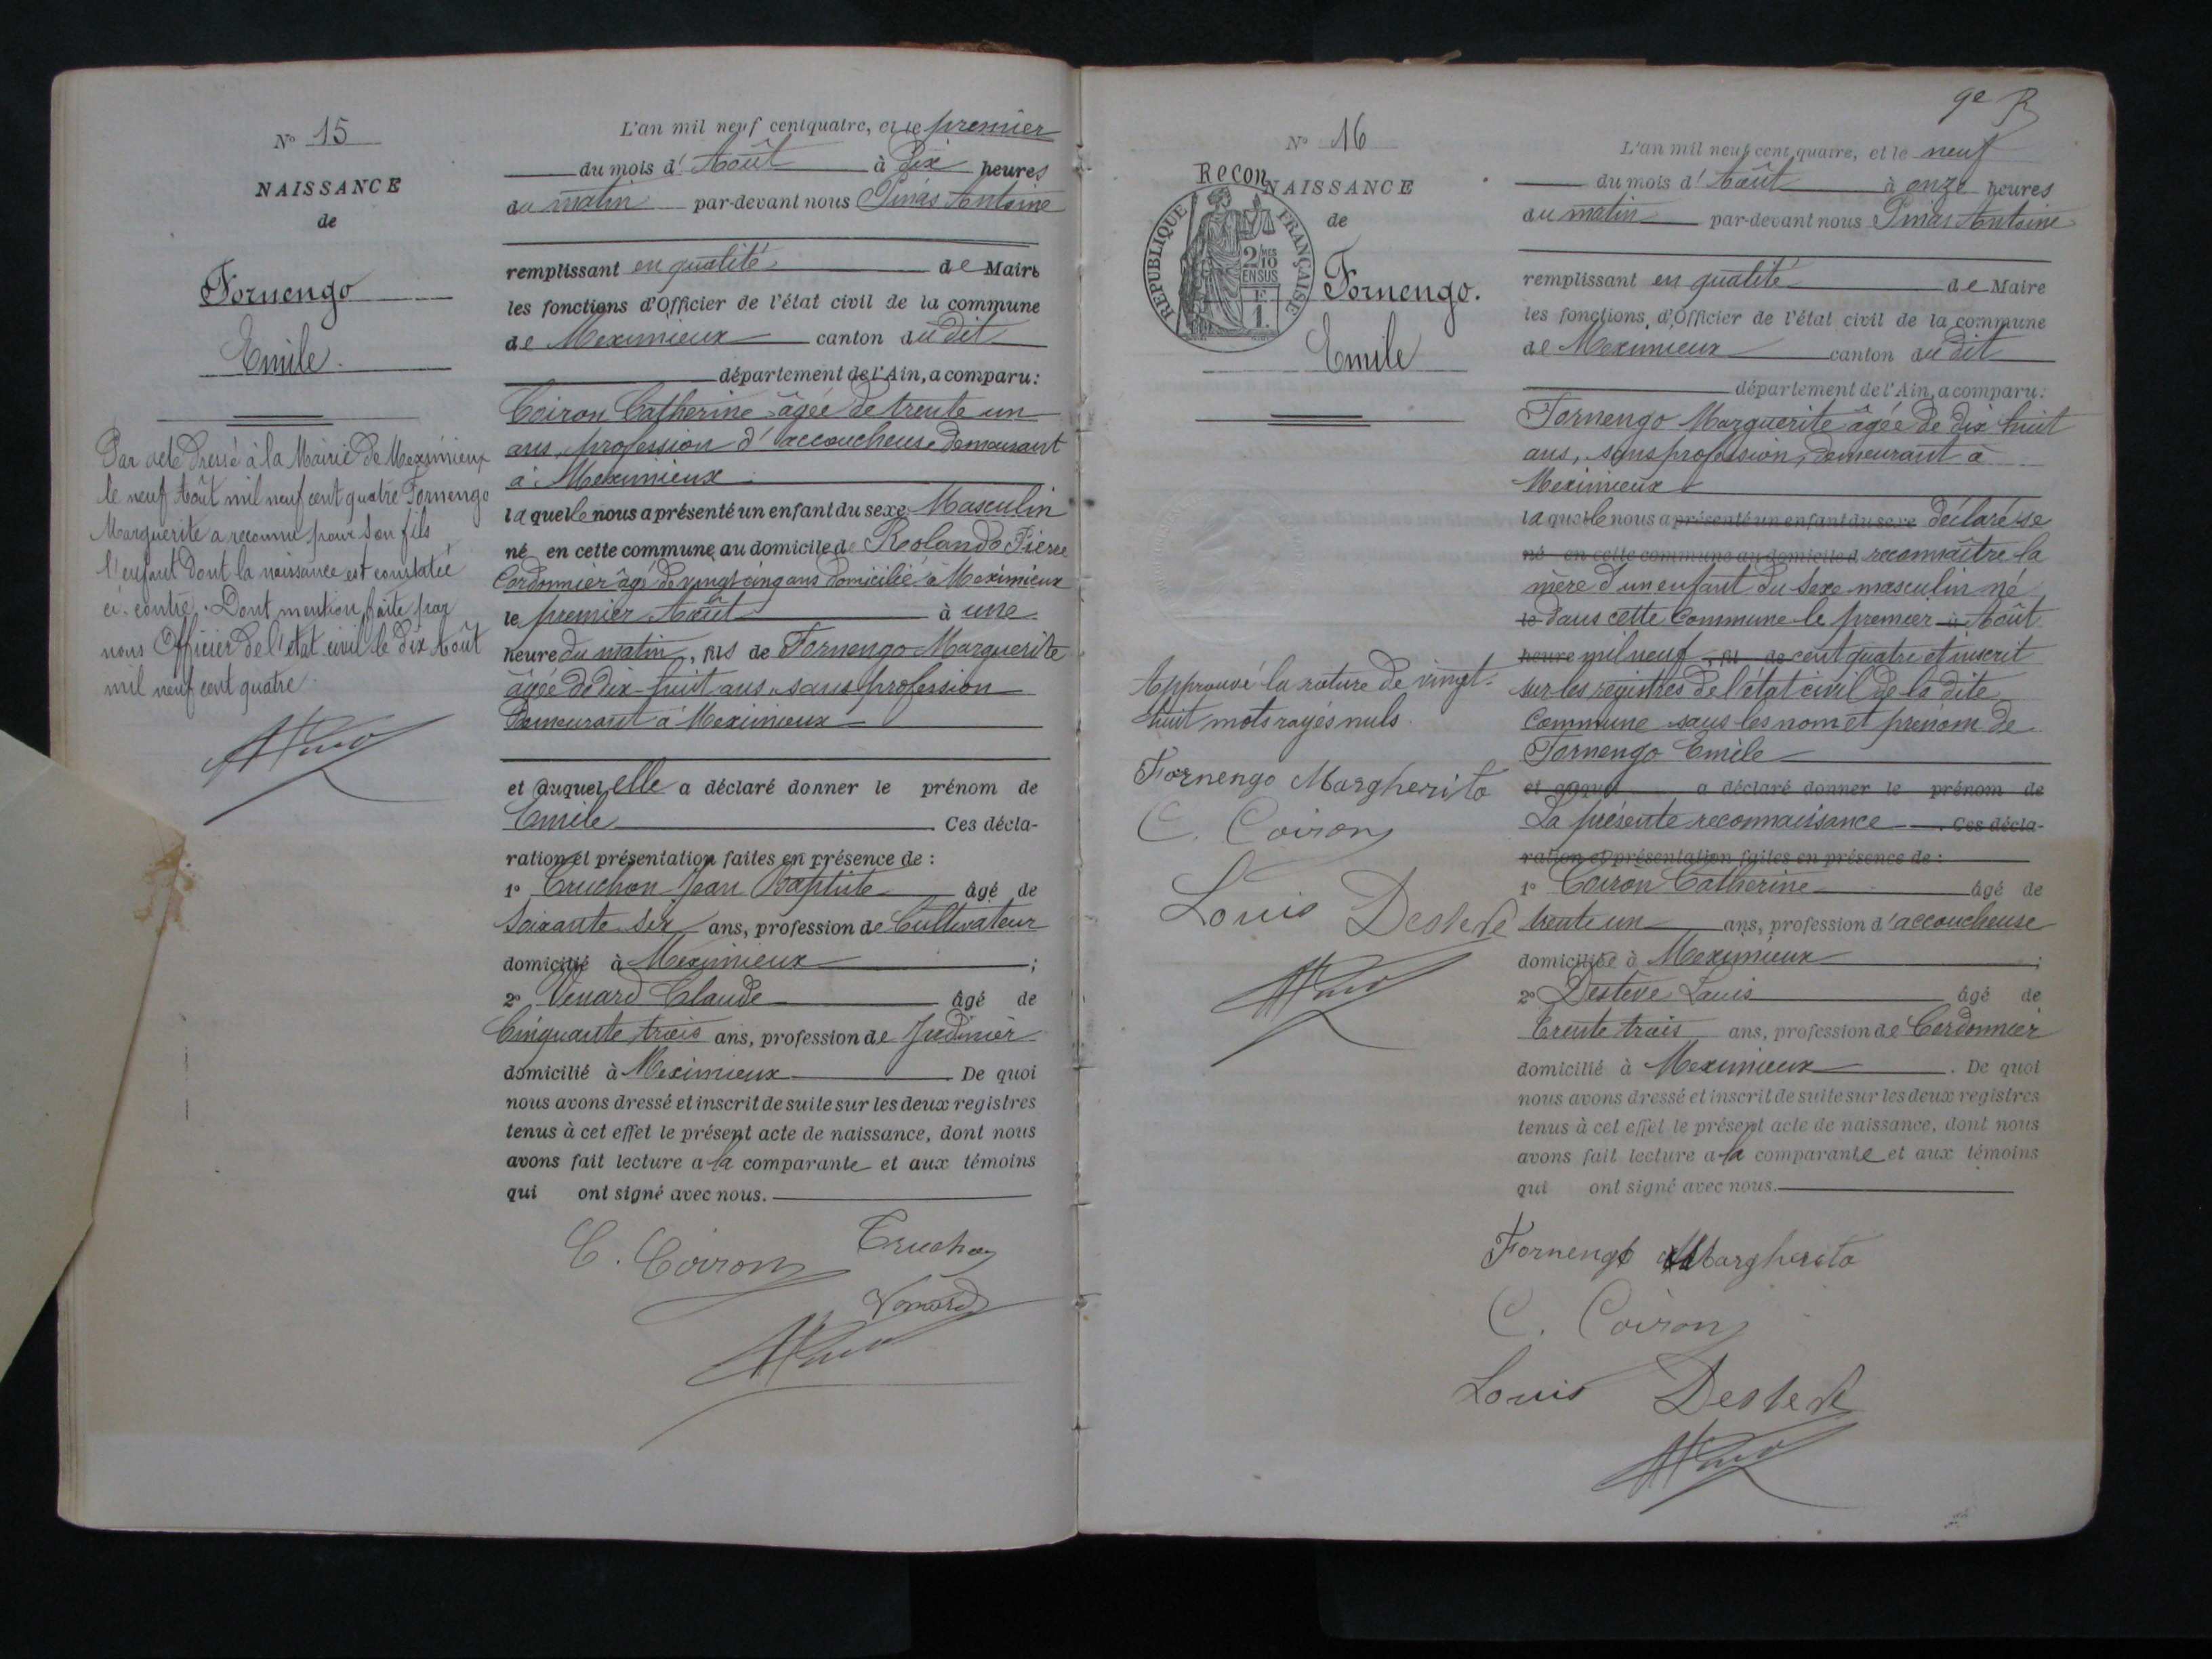 N° 15
NAISSANCE
de
Fornengo
Emile.
Par acte dressé à la Mairie de Meximieux
le neuf Août mil neuf cent quatre Fornengo
Marguerite a reconnu pour son fils
l'enfant dont la naissance est constatée
ci-contre. Dont mention faite par
nous Officier de l'état civil le dix Août
mil neuf cent quatre.
L'an mil neuf cent quatre, et le premier
du mois d'Août à dix heures
du matin par-devant nous Pinás Antoine
remplissant en qualité de Maire
les fonctions d'Officier de l'état civil de la commune
de Meximieux canton du dit
département de l'Ain, a comparu:
Coiron Catherine âgée de trente un
ans, profession d'accoucheuse demeurant
à Meximieux
laquelle nous a présenté un enfant du sexe Masculin
né en cette commune au domicile de Rolando Pierre
Cordonnier âgé de vingt cinq ans domicilié à Meximieux
le premier Août à une
heure du matin, fils de Fornengo Marguerite
âgée de dix-huit ans, sans profession
demeurant à Meximieux
et duquel elle a déclaré donner le prénom de
Emile. Ces décla-
ration et présentation faites en présence de :
1° Truchon Jean Baptiste âgé de
soixante six ans, profession de Cultivateur
domicilié à Meximieux ;
2° Venard Claude âgé de
Cinquante trois ans, profession de Jardinier
domicilié à Meximieux De quoi
nous avons dressé et inscrit de suite sur les deux registres
tenus à cet effet le présent acte de naissance, dont nous
avons fait lecture a la comparante et aux témoins
qui ont signé avec nous.
C. Coiron Truchon
Venard
9e R
N° 16
Recon
NAISSANCE
de
REPUBLIQUE FRANÇAISE
2/10 EN SUS
1 F.
Fornengo.
Emile
Approuvé la rature de vingt-
huit mots rayés nuls.
Fornengo Margherita
C. Coiron
Louis Desteve
L'an mil neuf cent quatre, et le neuf
du mois d'Août à onze heures
du matin par-devant nous Pinás Antoine
remplissant en qualité de Maire
les fonctions d'Officier de l'état civil de la commune
de Meximieux canton du dit
département de l'Ain, a comparu:
Fornengo Marguerite âgée de dix huit
ans, sans profession, demeurant à
Meximieux
laquelle nous a présenté un enfant du sexe déclaré se
né en cette commune au domicile d reconnaître la
mère d'un enfant du sexe masculin né
le dans cette Commune le premier à Août
heure mil neuf , fil de cent quatre et inscrit
sur les registres de l'état civil de la dite
Commune sous les nom et prénom de
Fornengo Emile
et duquel a déclaré donner le prénom de
La présente reconnaissance . Ces décla-
ration et présentation faites en présence de :
1° Coiron Catherine âgé de
trente un ans, profession d'accoucheuse
domiciliée à Meximieux ;
2° Desteve Louis âgé de
trente trois ans, profession de Cordonnier
domicilié à Meximieux. De quoi
nous avons dressé et inscrit de suite sur les deux registres
tenus à cet effet le présent acte de naissance, dont nous
avons fait lecture a la comparante et aux témoins
qui ont signé avec nous.
Fornengo Margherita
C. Coiron
Louis Desteve